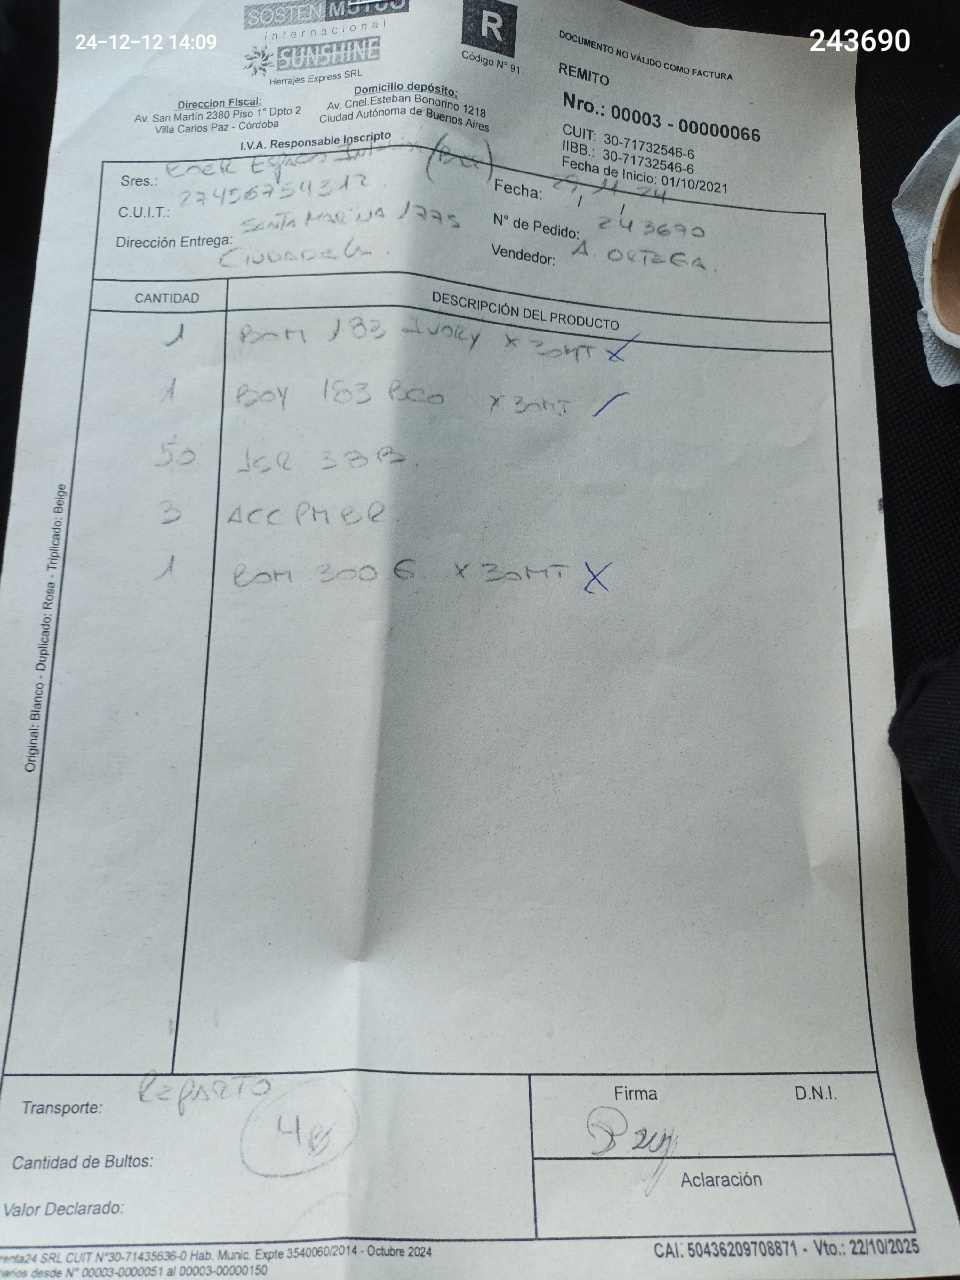 24-12-12 14:09
243690
SOSTEN MUTUO
internacional
SUNSHINE
Herrajes Express SRL
R
Código N° 91
DOCUMENTO NO VÁLIDO COMO FACTURA
REMITO
Nro.: 00003 - 00000066
CUIT: 30-71732546-6
IIBB.: 30-71732546-6
Fecha de Inicio: 01/10/2021
Direccion Fiscal:
Av. San Martín 2380 Piso 1° Dpto 2
Villa Carlos Paz - Córdoba
Domicilio depósito:
Av. Cnel.Esteban Bonorino 1218
Ciudad Autónoma de Buenos Aires
I.V.A. Responsable Inscripto
Sres.:
Fecha: 29/11/24
C.U.I.T.: 27456754312
N° de Pedido: 243690
Dirección Entrega: SANTA MARINA 1775
CIUDADELA
Vendedor: A. ORTEGA.
CANTIDAD DESCRIPCIÓN DEL PRODUCTO
1 183 IVORY X 30MT X
1 183 BCO X 30MT /
50 338
3 ACC PM BR
1 300 X 30MT X
Original: Blanco - Duplicado: Rosa - Triplicado: Beige
Transporte: REPARTO
Cantidad de Bultos: 4B
Valor Declarado:
Firma D.N.I.
Aclaración
24 SRL CUIT N°30-71435636-0 Hab. Munic. Expte 3540060/2014 - Octubre 2024
desde N° 00003-0000051 al 00003-00000150
CAI: 50436209708871 - Vto.: 22/10/2025